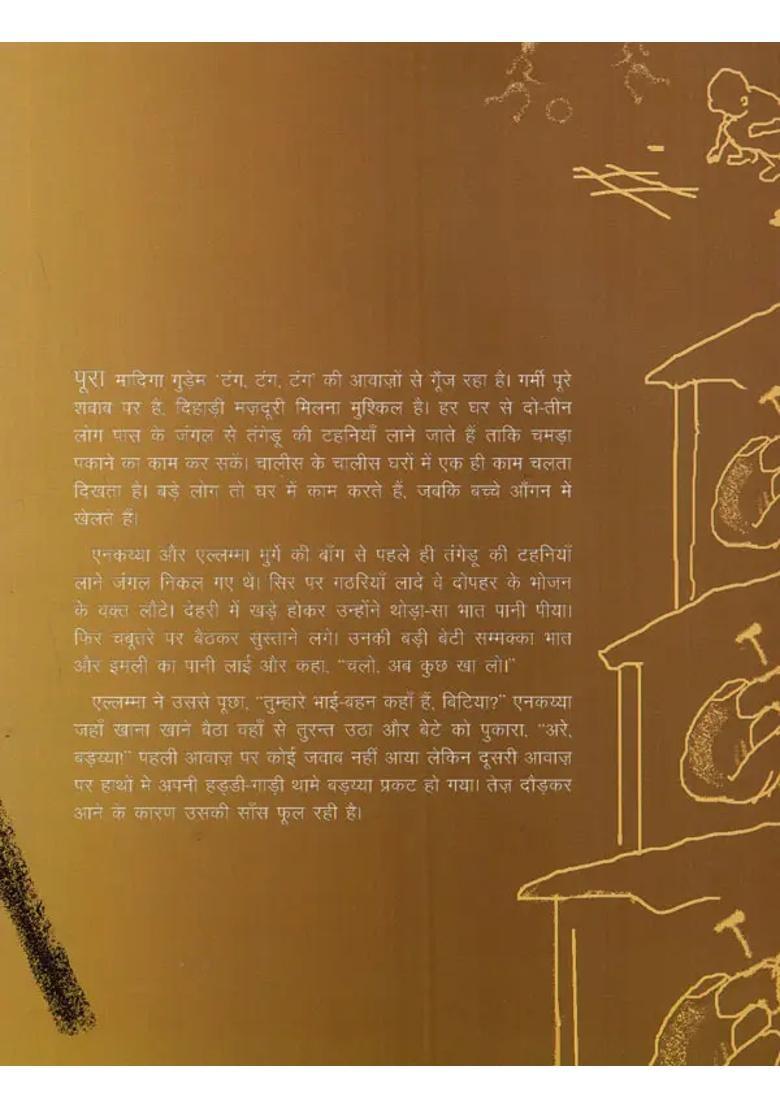 पूरा मादिगा गुड़ेम 'टंग, टंग, टंग' की आवाज़ों से गूँज रहा है। गर्मी पूरे
शबाब पर है, दिहाड़ी मज़दूरी मिलना मुश्किल है। हर घर से दो-तीन
लोग पास के जंगल से तंगेडू की टहनियाँ लाने जाते हैं ताकि चमड़ा
पकाने का काम कर सकें। चालीस के चालीस घरों में एक ही काम चलता
दिखता है। बड़े लोग तो घर में काम करते हैं, जबकि बच्चे आँगन में
खेलते हैं।
एनकय्या और एल्लम्मा मुर्गे की बाँग से पहले ही तंगेडू की टहनियाँ
लाने जंगल निकल गए थे। सिर पर गठरियाँ लादे वे दोपहर के भोजन
के वक्त लौटे। देहरी में खड़े होकर उन्होंने थोड़ा-सा भात पानी पीया।
फिर चबूतरे पर बैठकर सुस्ताने लगे। उनकी बड़ी बेटी सम्मक्का भात
और इमली का पानी लाई और कहा, "चलो, अब कुछ खा लो।"
एल्लम्मा ने उससे पूछा, "तुम्हारे भाई-बहन कहाँ हैं, बिटिया?" एनकय्या
जहाँ खाना खाने बैठा वहाँ से तुरन्त उठा और बेटे को पुकारा, "अरे,
बड़य्या!" पहली आवाज़ पर कोई जवाब नहीं आया लेकिन दूसरी आवाज़
पर हाथों मे अपनी हड्डी-गाड़ी थामे बड़य्या प्रकट हो गया। तेज़ दौड़कर
आने के कारण उसकी साँस फूल रही है।